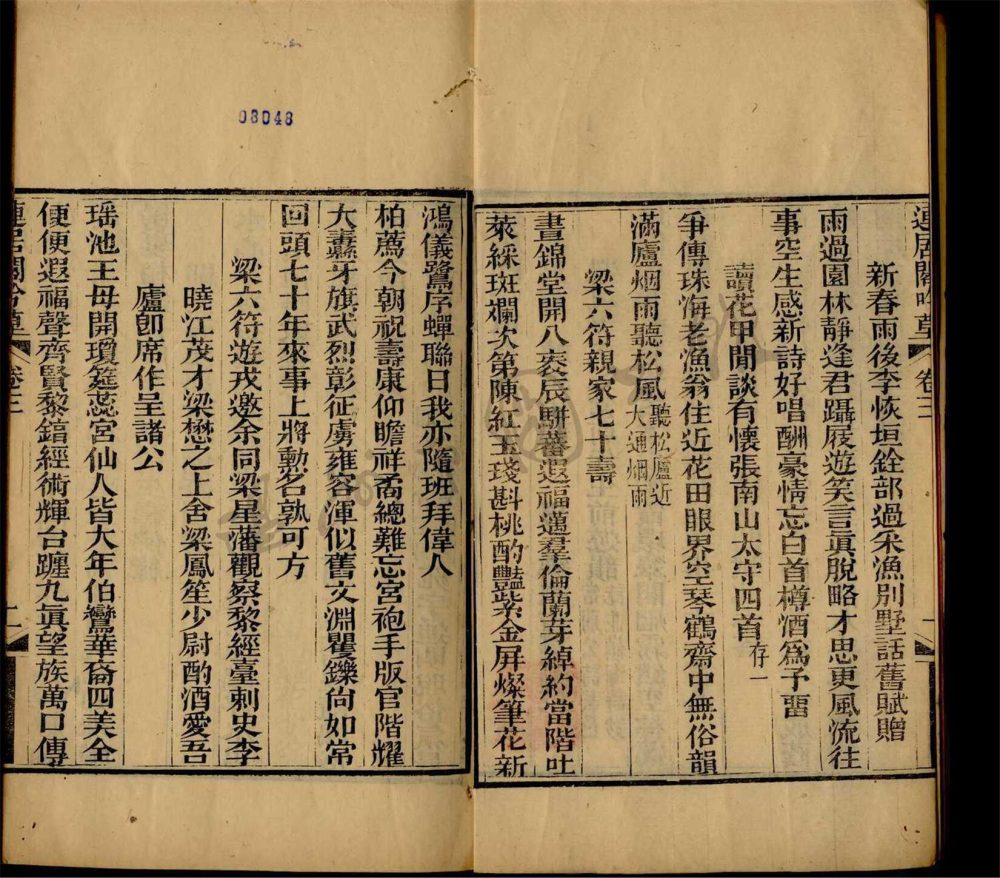 08048
新春雨後李恢垣銓部過采漁別墅話舊賦贈
雨過園林靜逢君躡屐遊笑言眞脫略才思更風流往
事空生感新詩好唱酬豪情忘白首樽酒爲予畱
讀花甲閒談有懷張南山太守四首存一
爭傳珠海老漁翁住近花田眼界空琴鶴齋中無俗韻
滿廬烟雨聽松風聽松廬近
大通烟雨
梁六符親家七十壽
晝錦堂開八袠辰駢蕃遐福邁羣倫蘭芽綽約當階吐
萊綵斑斕次第陳紅玉琖斟桃酌豔紫金屏燦筆花新
鴻儀鷺序蟬聯日我亦隨班拜偉人
柏薦今朝祝壽康仰瞻祥矞總難忘宮袍手版官階耀
大纛牙旗武烈彰征虜雍容渾似舊文淵矍鑠尙如常
回頭七十年來事上將勳名孰可方
梁六符遊戎邀余同梁星藩觀察黎經臺刺史李
曉江茂才梁懋之上舍梁鳳笙少尉酌酒愛吾
廬卽席作呈諸公
瑶池王母開瓊筵蕊宮仙人皆大年伯鸞華裔四美全
便便遐福聲齊賢黎錇經術輝台躔九眞望族萬口傳